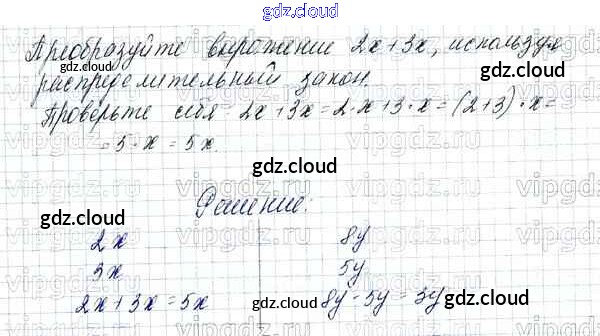 gdz.cloud
Преобразуйте выражение 2x+3x, используя
распределительный закон.
gdz.cloud
gdz.cloud
Проверьте себя 2x+3x=2·x+3·x=(2+3)·x=
=5·x=5x.
vipgdz.ru vipgdz.ru vipgdz.ru
gdz.cloud
gdz.cloud
Решение:
2x 8y
3x 5y
2x+3x=5x 8y-5y=3y
gdz.cloud
gdz.cloud